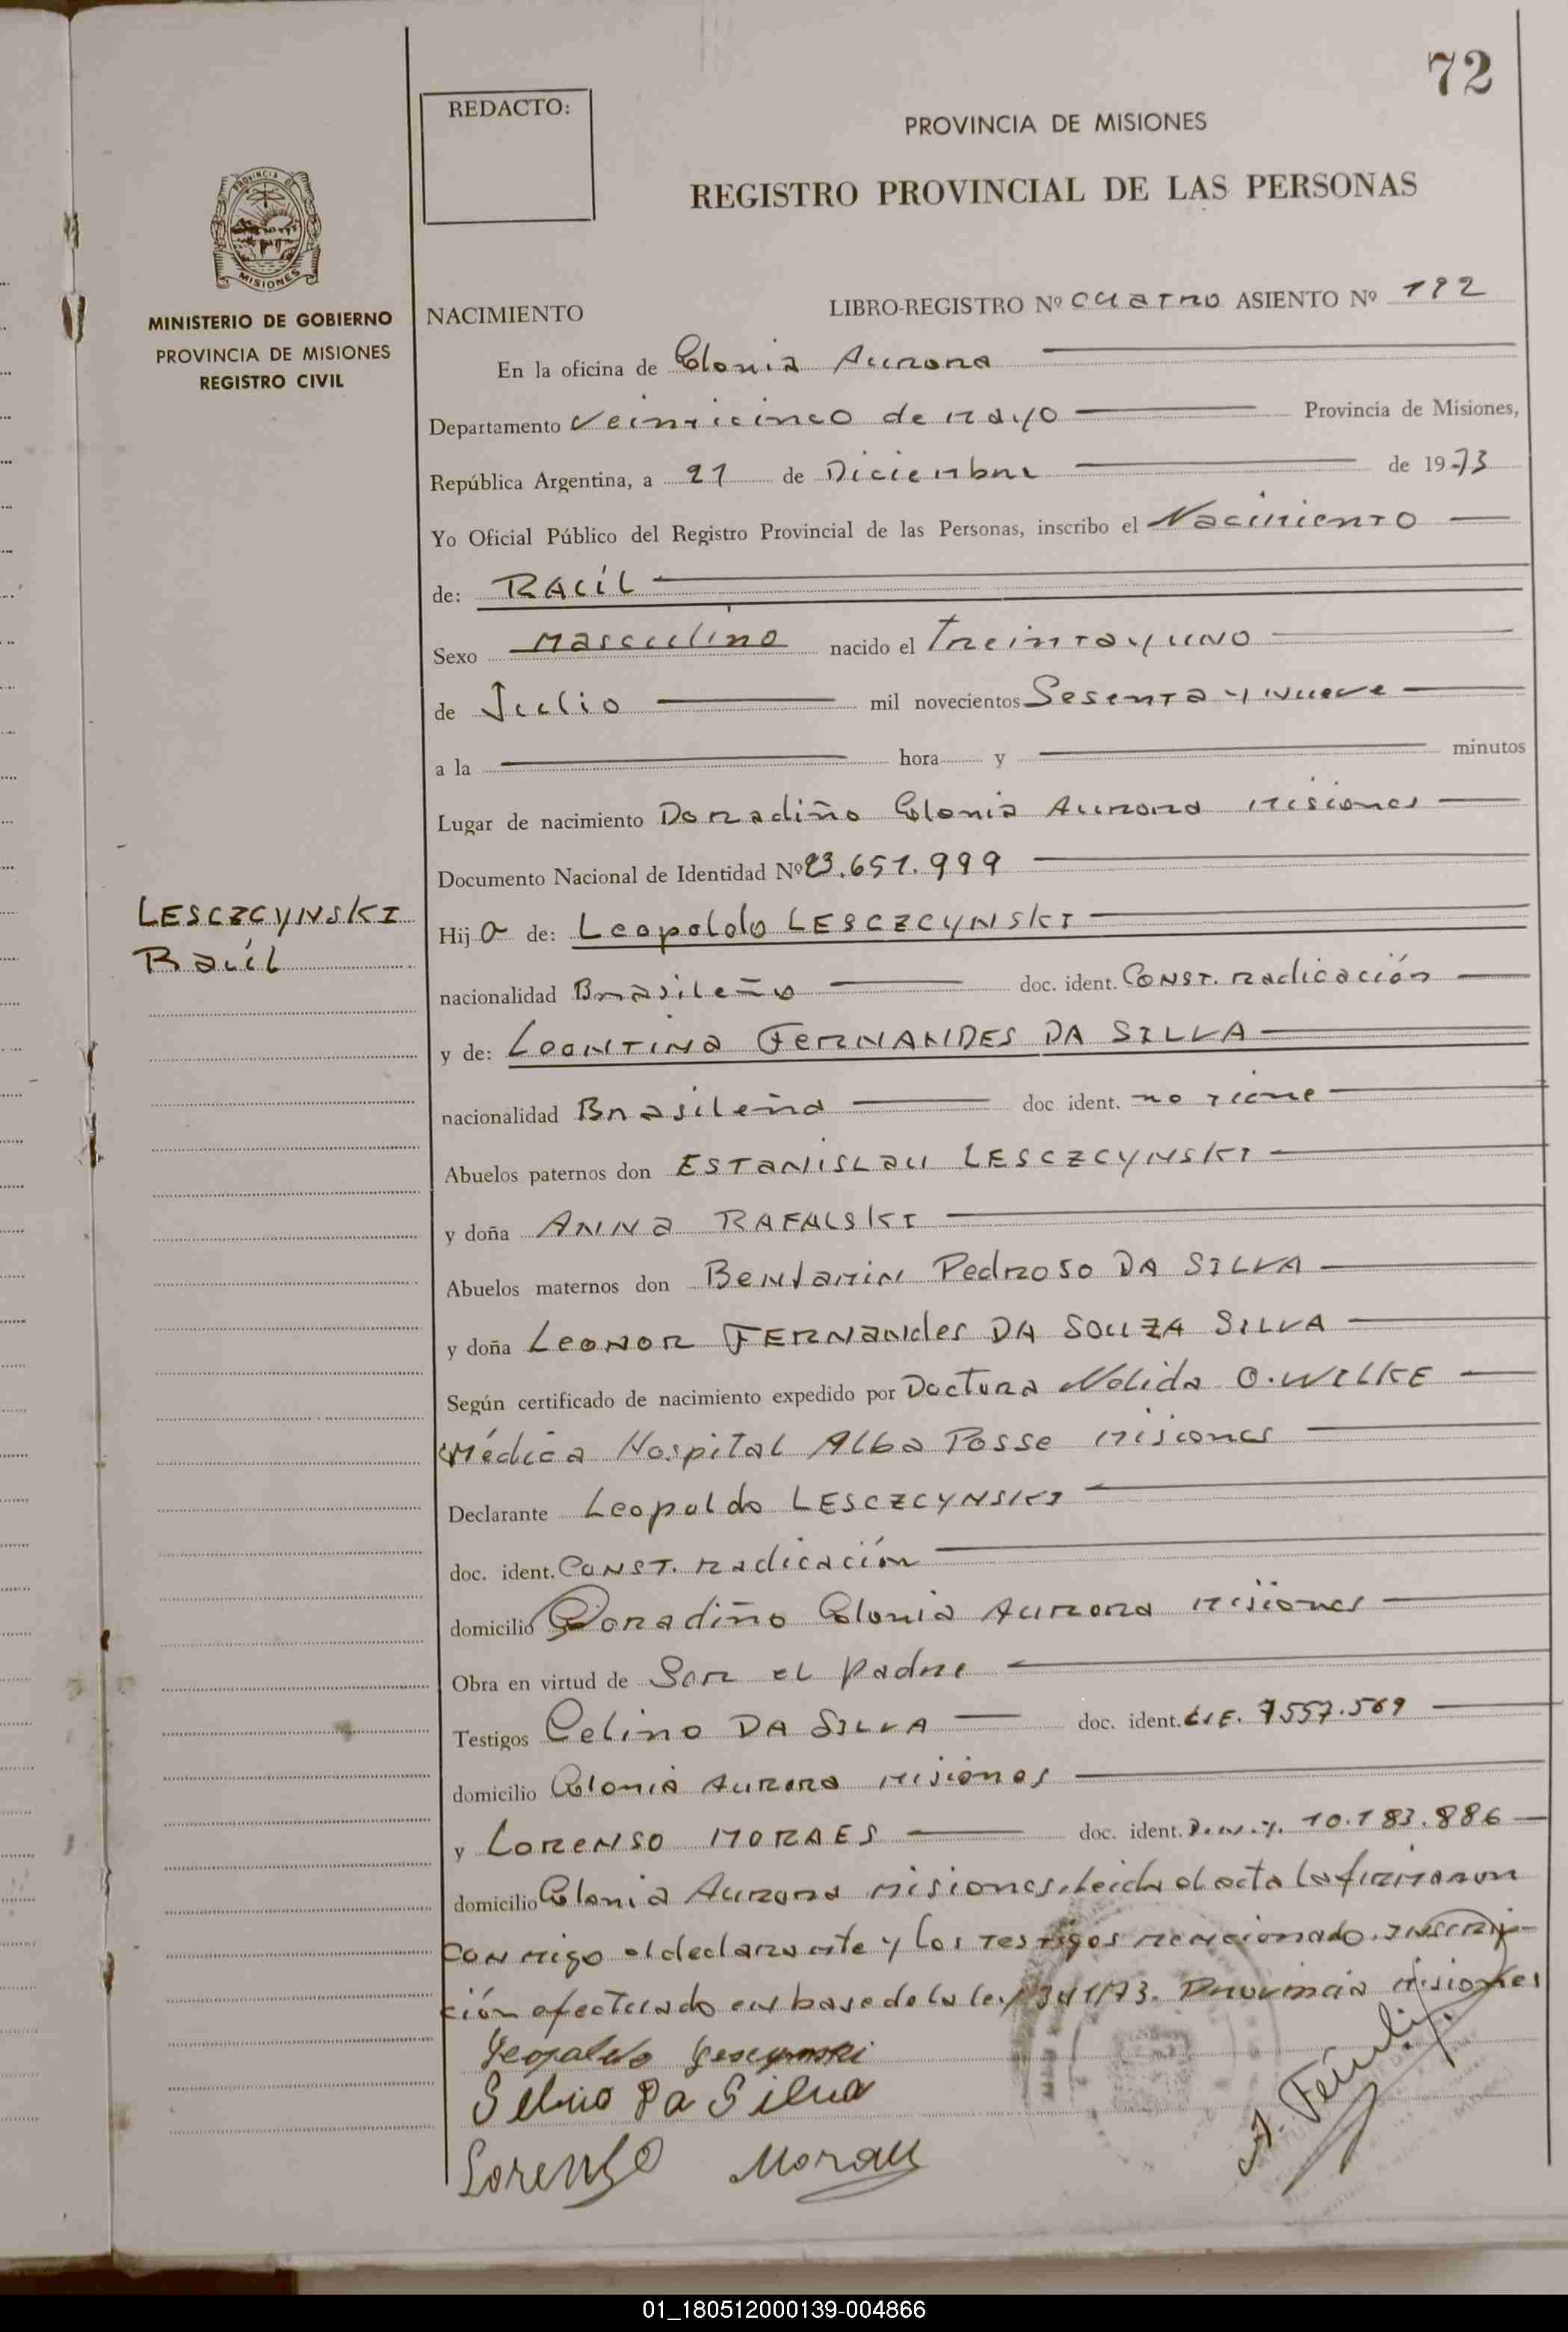 72
REDACTO:
PROVINCIA DE MISIONES
REGISTRO PROVINCIAL DE LAS PERSONAS
PROVINCIA DE
MISIONES
MINISTERIO DE GOBIERNO
PROVINCIA DE MISIONES
REGISTRO CIVIL
NACIMIENTO LIBRO-REGISTRO Nº cuatro ASIENTO Nº 192
En la oficina de Colonia Aurora
Departamento Veinticinco de Mayo Provincia de Misiones,
República Argentina, a 21 de Diciembre de 1973
Yo Oficial Público del Registro Provincial de las Personas, inscribo el Nacimiento
de: RAÚL
Sexo Masculino nacido el Treinta y uno
de Julio mil novecientos Sesenta y Nueve
a la hora y minutos
Lugar de nacimiento Doradiño Colonia Aurora Misiones
Documento Nacional de Identidad Nº 23.651.999
LESCZCYNSKI
Raúl
Hijo de: Leopoldo LESCZCYNSKI
nacionalidad Brasileño doc. ident. CONST. radicación
y de: Leontina FERNANDES DA SILVA
nacionalidad Brasileña doc ident. no tiene
Abuelos paternos don ESTANISLAU LESCZCYNSKI
y doña ANNA RAFALSKI
Abuelos maternos don BENJAMIN Pedroso DA SILVA
y doña LEONOR FERNandes DA SOUZA SILVA
Según certificado de nacimiento expedido por Doctora Nelida O. WILKE
Médica Hospital Alba Posse Misiones
Declarante Leopoldo LESCZCYNSKI
doc. ident. CONST. radicación
domicilio Doradiño Colonia Aurora Misiones
Obra en virtud de Ser el padre
Testigos Celino DA SILVA doc. ident. L.E. 7557.569
domicilio Colonia Aurora Misiones
y LORENSO MORAES doc. ident. D.N.I. 10.183.886
domicilio Colonia Aurora Misiones, Leida el acta la firmaron
conmigo el declarante y los testigos mencionado. Inscrip-
ción efectuado en base de la ley 341/73. Provincia Misiones
Leopaldo
Selino Da Silva
Lorenso Moraes
01_180512000139-004866